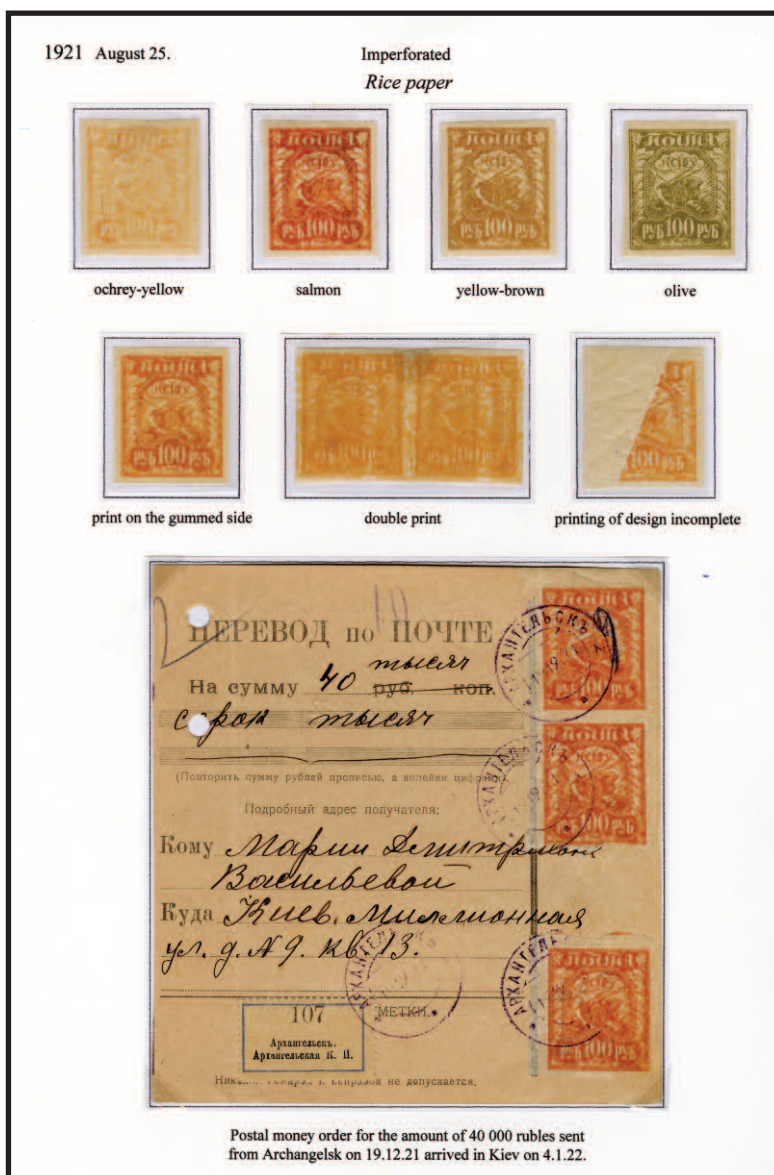 1921 August 25.
Imperforated
Rice paper
ПОЧТА
РУБ 100 РУБ
ПОЧТА
РУБ 100 РУБ
ПОЧТА
РУБ 100 РУБ
ПОЧТА
РУБ 100 РУБ
ochrey-yellow
salmon
yellow-brown
olive
ПОЧТА
РУБ 100 РУБ
100
100
100 РУБ
print on the gummed side
double print
printing of design incomplete
ПЕРЕВОД по ПОЧТЕ
тысяч
На сумму 40 руб. коп.
сорок тысяч
(Повторить сумму рублей прописью, а копейки цифрами).
Подробный адрес получателя:
Кому Марии Дмитриевне
Васильевой
Куда Киев. Миллионная
ул. д. № 9. кв. 13.
107
МЕТКИ.
Архангельскъ.
Архангельская К. П.
не допускается.
ПОЧТА
100 РУБ
АРХАНГЕЛЬСКЪ
ПОЧТА
100 РУБ
АРХАНГЕЛЬСКЪ
100 РУБ
Postal money order for the amount of 40 000 rubles sent
from Archangelsk on 19.12.21 arrived in Kiev on 4.1.22.